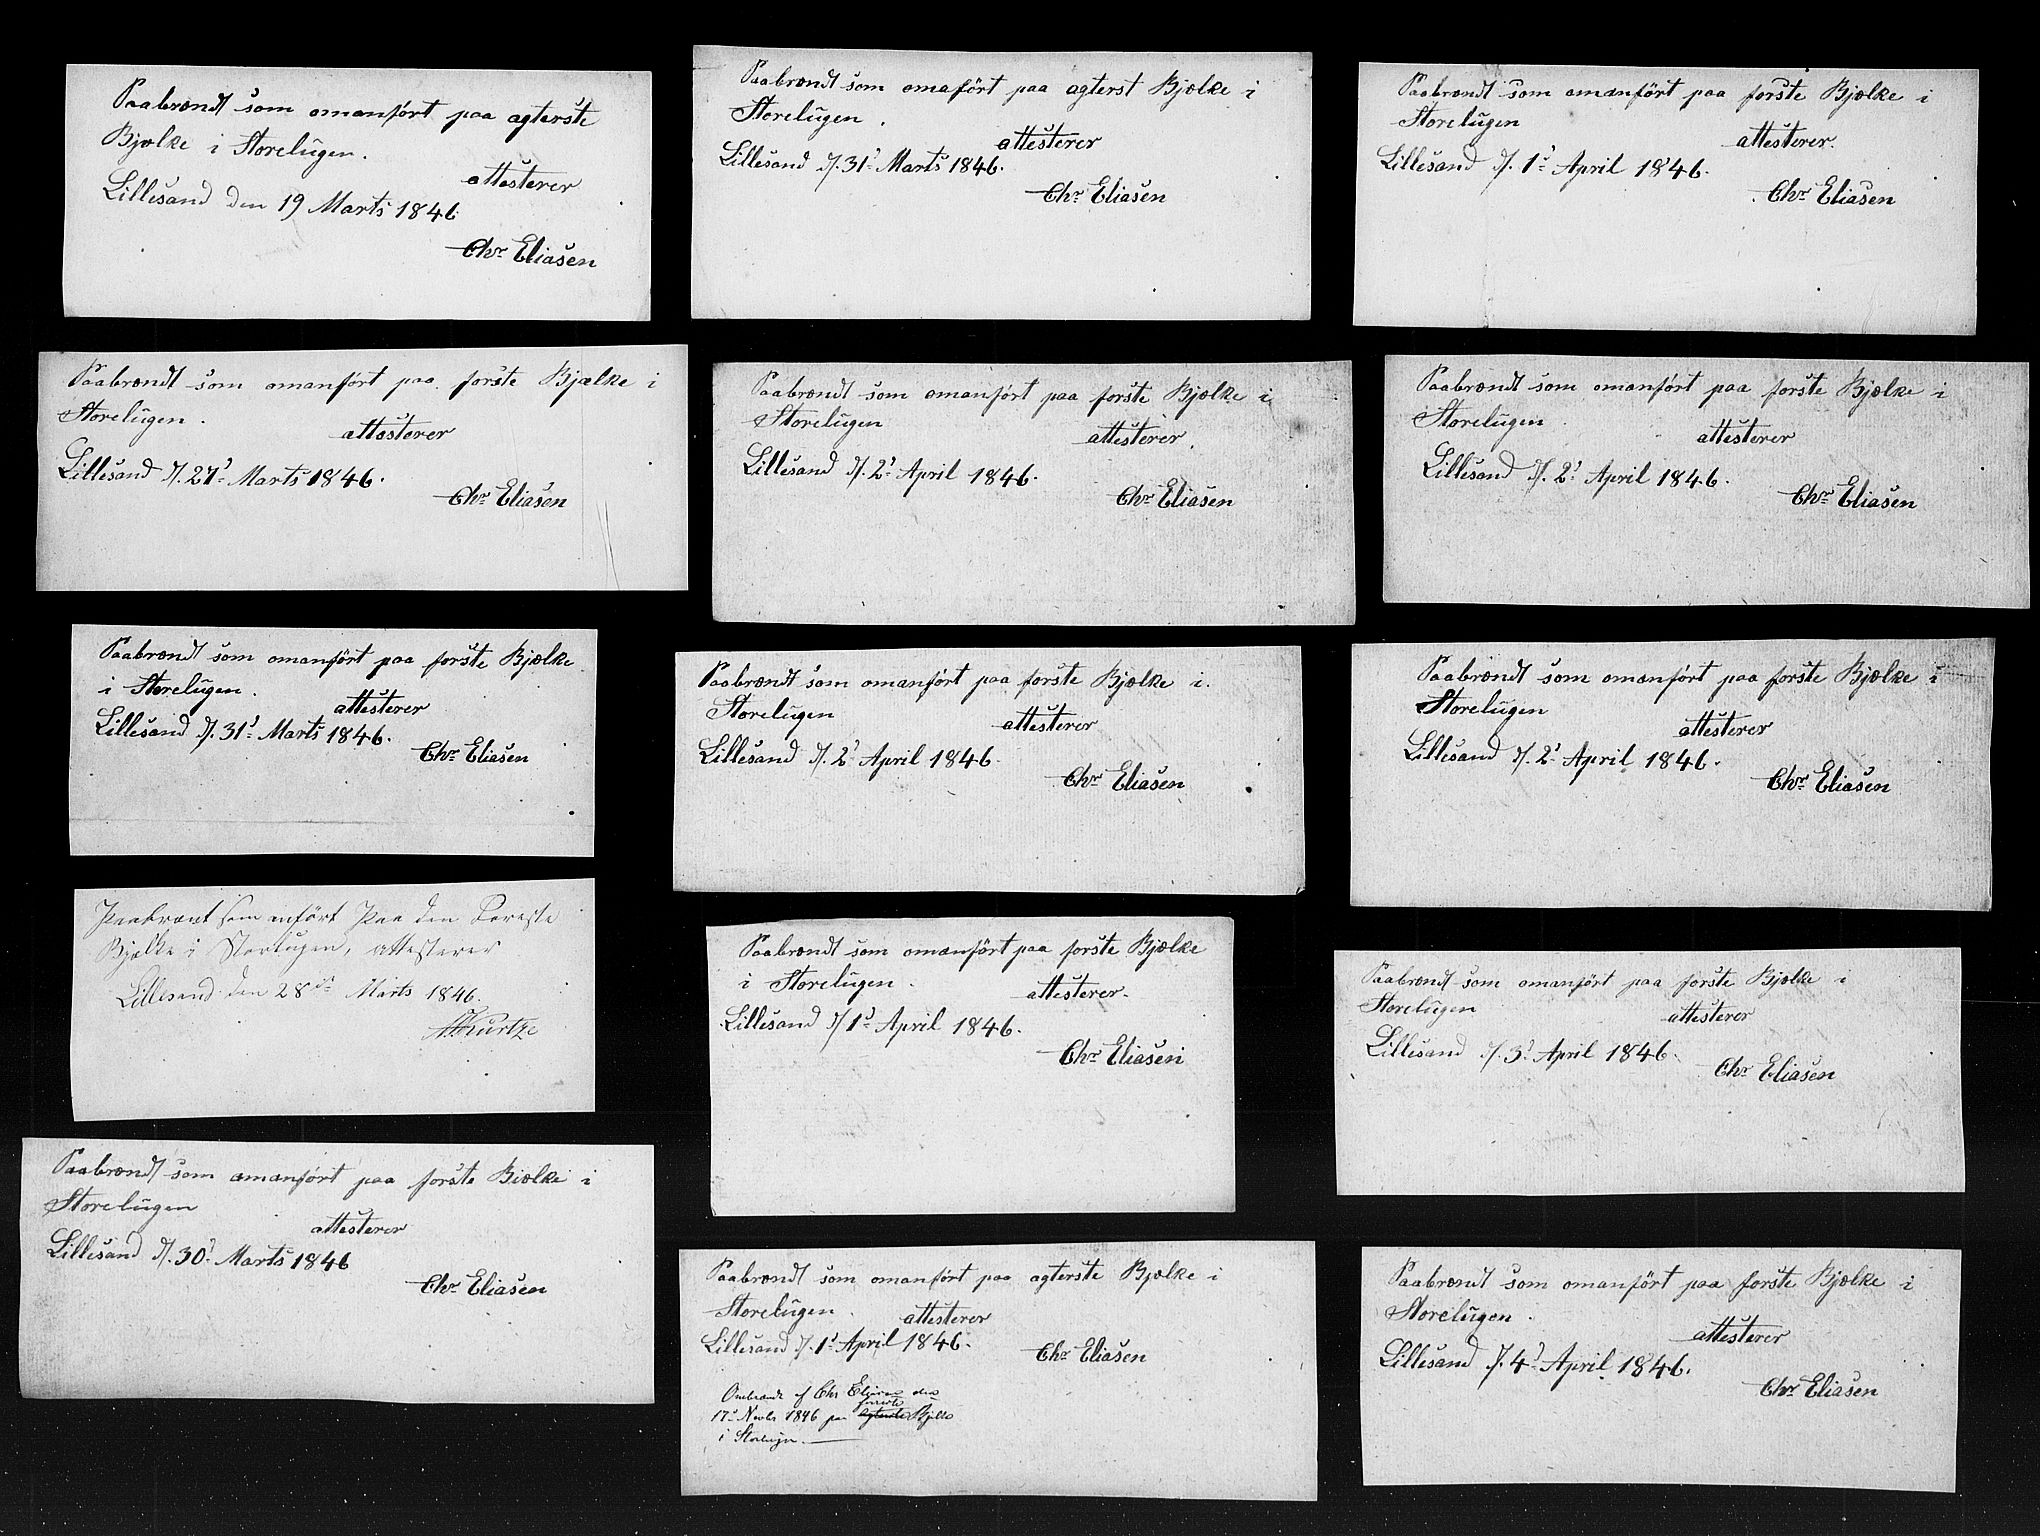 Paabrændt som omanført paa agterste
Bjælke i Storelugen.
attesterer
Lillesand den 19 Marts 1846
Chr Eliasen
Paabrændt som omanført paa første Bjælke i
Storelugen.
attesterer
Lillesand d. 27s Marts 1846.
Chr Eliasen
Paabrændt som omanført paa første Bjælke
i Storelugen.
attesterer
Lillesand d. 31s Marts 1846.
Chr Eliasen
Paabrænt som anført Paa den Føreste
Bjelke i Storlugen, attesterer
Lillesand den 28de Marts 1846.
Kurtze
Paabrændt som omanført paa første Biælke i
Storelugen
attesterer
Lillesand d. 30s Marts 1846
Chr Eliasen
Paabrændt som omaført paa agterst Bjælke i
Storelugen.
attesterer
Lillesand d. 31s Marts 1846.
Chr Eliasen
Paabrændt som omanført paa første Bjælke i
Storelugen
attesterer
Lillesand d. 2s April 1846.
Chr Eliasen
Paabrændt som omanført paa første Bjælke i
Storelugen
attesterer
Lillesand d. 2s April 1846.
Chr Eliasen
Paabrændt som omanført paa første Bjælke
i Storelugen.
attesterer.
Lillesand d 1s April 1846.
Chr Eliasen
Paabrændt som omanført paa agterste Bjælke i
Storelugen.
attesterer
Lillesand d. 1s April 1846.
Chr Eliasen
Ombrændt af Chr Eliasen den
forreste
17s Novbr 1846 paa agterste Bjelke
i Storlugen
Paabrændt som omanført paa første Bjælke i
Storelugen
attesterer.
Lillesand d. 1s April 1846.
Chr Eliasen
Paabrændt som omanført paa første Bjælke i
Storelugen
attesterer
Lillesand d. 2s April 1846.
Chr Eliasen
Paabrændt som omanført paa første Bjælke i
Storelugen
attesterer
Lillesand d. 2s April 1846.
Chr Eliasen
Paabrændt som omanført paa første Bjælke i
Storelugen
attesterer
Lillesand d. 3s April 1846.
Chr Eliasen
Paabrændt som omanført paa første Bjælke i
Storelugen.
attesterer
Lillesand d. 4s April 1846.
Chr Eliasen